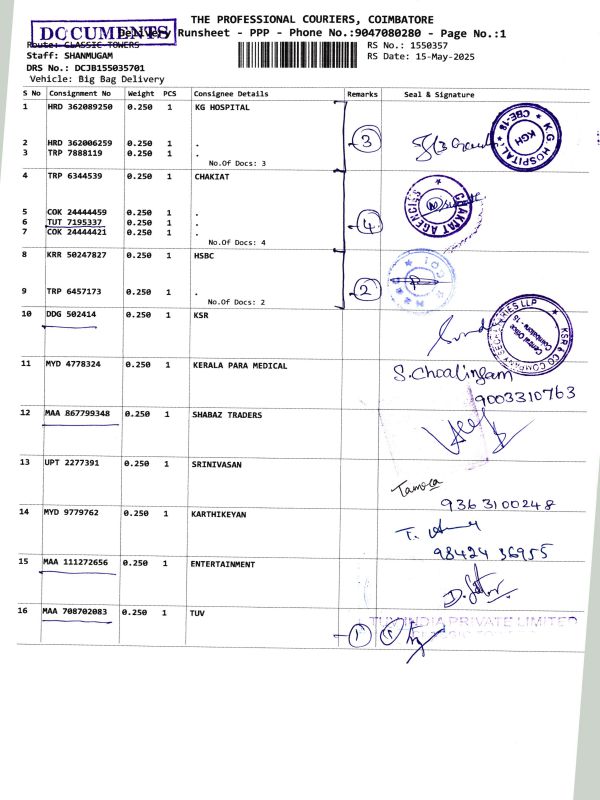 THE PROFESSIONAL COURIERS, COIMBATORE
DOCUMENTS
Delivery Runsheet - PPP - Phone No.:9047080280 - Page No.:1
Route: CLASSIC TOWERS
RS No.: 1550357
Staff: SHANMUGAM
RS Date: 15-May-2025
DRS No.: DCJB155035701
Vehicle: Big Bag Delivery
S No Consignment No Weight PCS Consignee Details Remarks Seal & Signature
1 HRD 362089250 0.250 1 KG HOSPITAL
2 HRD 362006259 0.250 1 .
3 TRP 7888119 0.250 1 .
No.Of Docs: 3
3
K G HOSPITAL
KGH
CBE-18
4 TRP 6344539 0.250 1 CHAKIAT
5 COK 24444459 0.250 1 .
6 TUT 7195337 0.250 1 .
7 COK 24444421 0.250 1 .
No.Of Docs: 4
4
CHAKIAT AGENCIES
8 KRR 50247827 0.250 1 HSBC
9 TRP 6457173 0.250 1 .
No.Of Docs: 2
2
10 DDG 502414 0.250 1 KSR
KSR & CO COMPANY SECRETARIES LLP
Central Office
Coimbatore
11 MYD 4778324 0.250 1 KERALA PARA MEDICAL
S.Choalingam
9003310763
12 MAA 867799348 0.250 1 SHABAZ TRADERS
13 UPT 2277391 0.250 1 SRINIVASAN
9363100248
14 MYD 9779762 0.250 1 KARTHIKEYAN
98424 36955
15 MAA 111272656 0.250 1 ENTERTAINMENT
16 MAA 708702083 0.250 1 TUV
1
TUV INDIA PRIVATE LIMITED